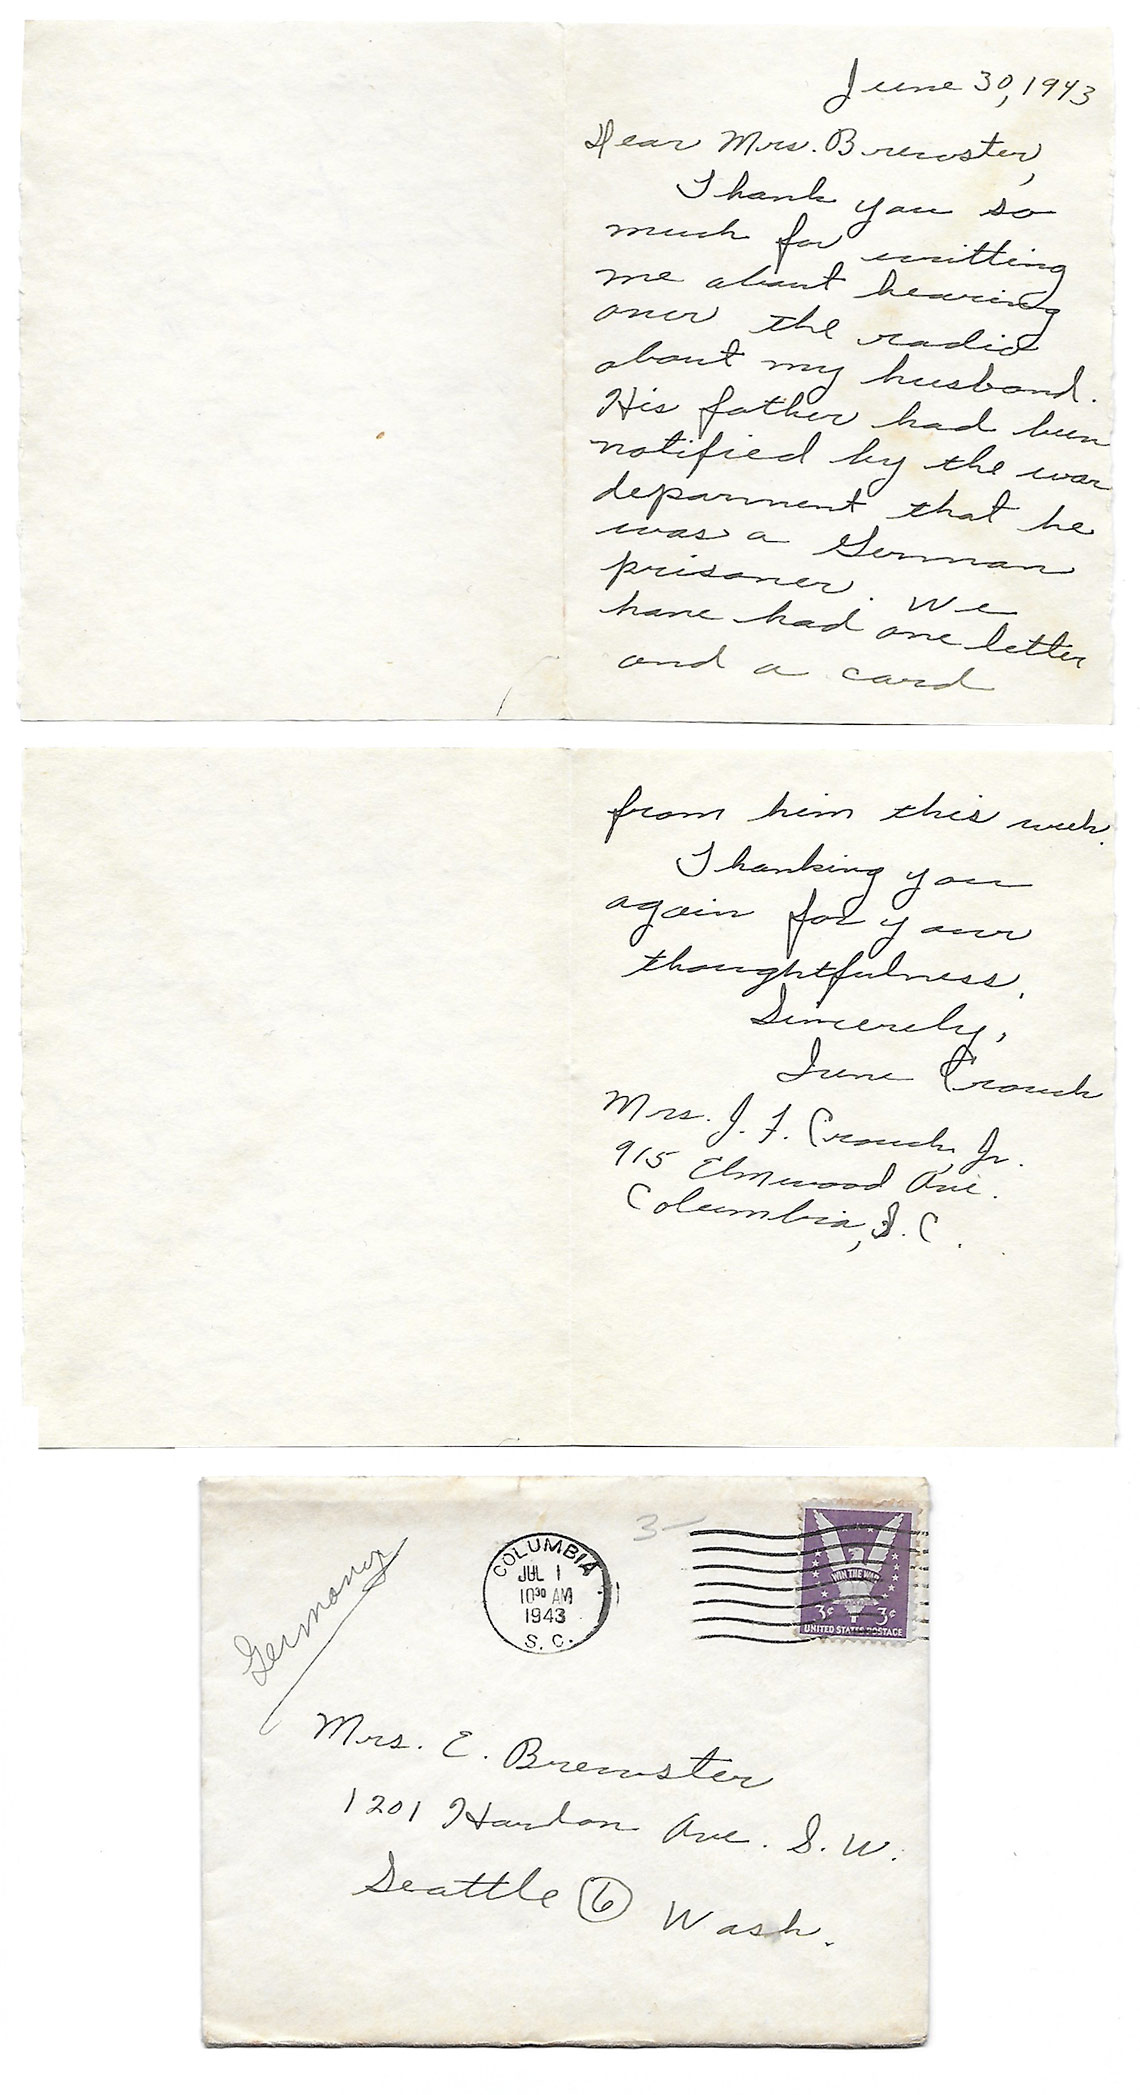 June 30, 1943
Dear Mrs. Brewster,
Thank you so
much for writting
me about hearing
over the radio
about my husband.
His father had been
notified by the war
deparment that he
was a German
prisoner. We
have had one letter
and a card
from him this week.
Thanking you
again for your
thoughtfulness.
Sincerely,
Irene Crouch
Mrs. J. F. Crouch, Jr.
915 Elmwood Ave.
Columbia, S.C.
Germany
3-
COLUMBIA
JUL 1
10³⁰ AM
1943
S. C.
WIN THE WAR
3¢ 3¢
UNITED STATES POSTAGE
Mrs. E. Brewster
1201 Ave. S. W.
Seattle 6 Wash.